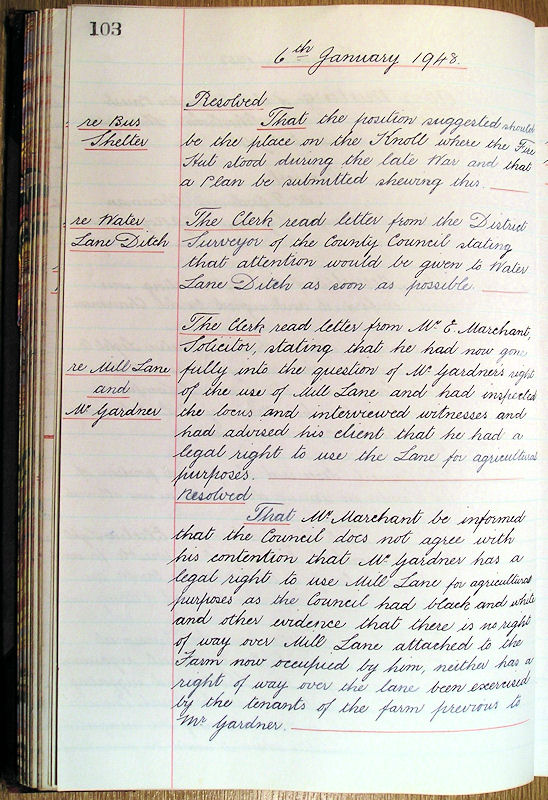 103
6th January 1948.
Resolved
re Bus
Shelter
That the position suggested should
be the place on the Knoll where the Fire
Hut stood during the late War and that
a Plan be submitted shewing this.
re Water
Lane Ditch
The Clerk read letter from the District
Surveyor of the County Council stating
that attention would be given to Water
Lane Ditch as soon as possible.
re Mill Lane
and
Mr Gardner
The Clerk read letter from Mr E. Marchant,
Solicitor, stating that he had now gone
fully into the question of Mr Gardner's right
of the use of Mill Lane and had inspected
the locus and interviewed witnesses and
had advised his client that he had a
legal right to use the Lane for agricultural
purposes.
Resolved
That Mr Marchant be informed
that the Council does not agree with
his contention that Mr Gardner has a
legal right to use Mill Lane for agricultural
purposes as the Council had black and white
and other evidence that there is no right
of way over Mill Lane attached to the
Farm now occupied by him, neither has a
right of way over the lane been exercised
by the tenants of the farm previous to
Mr Gardner.